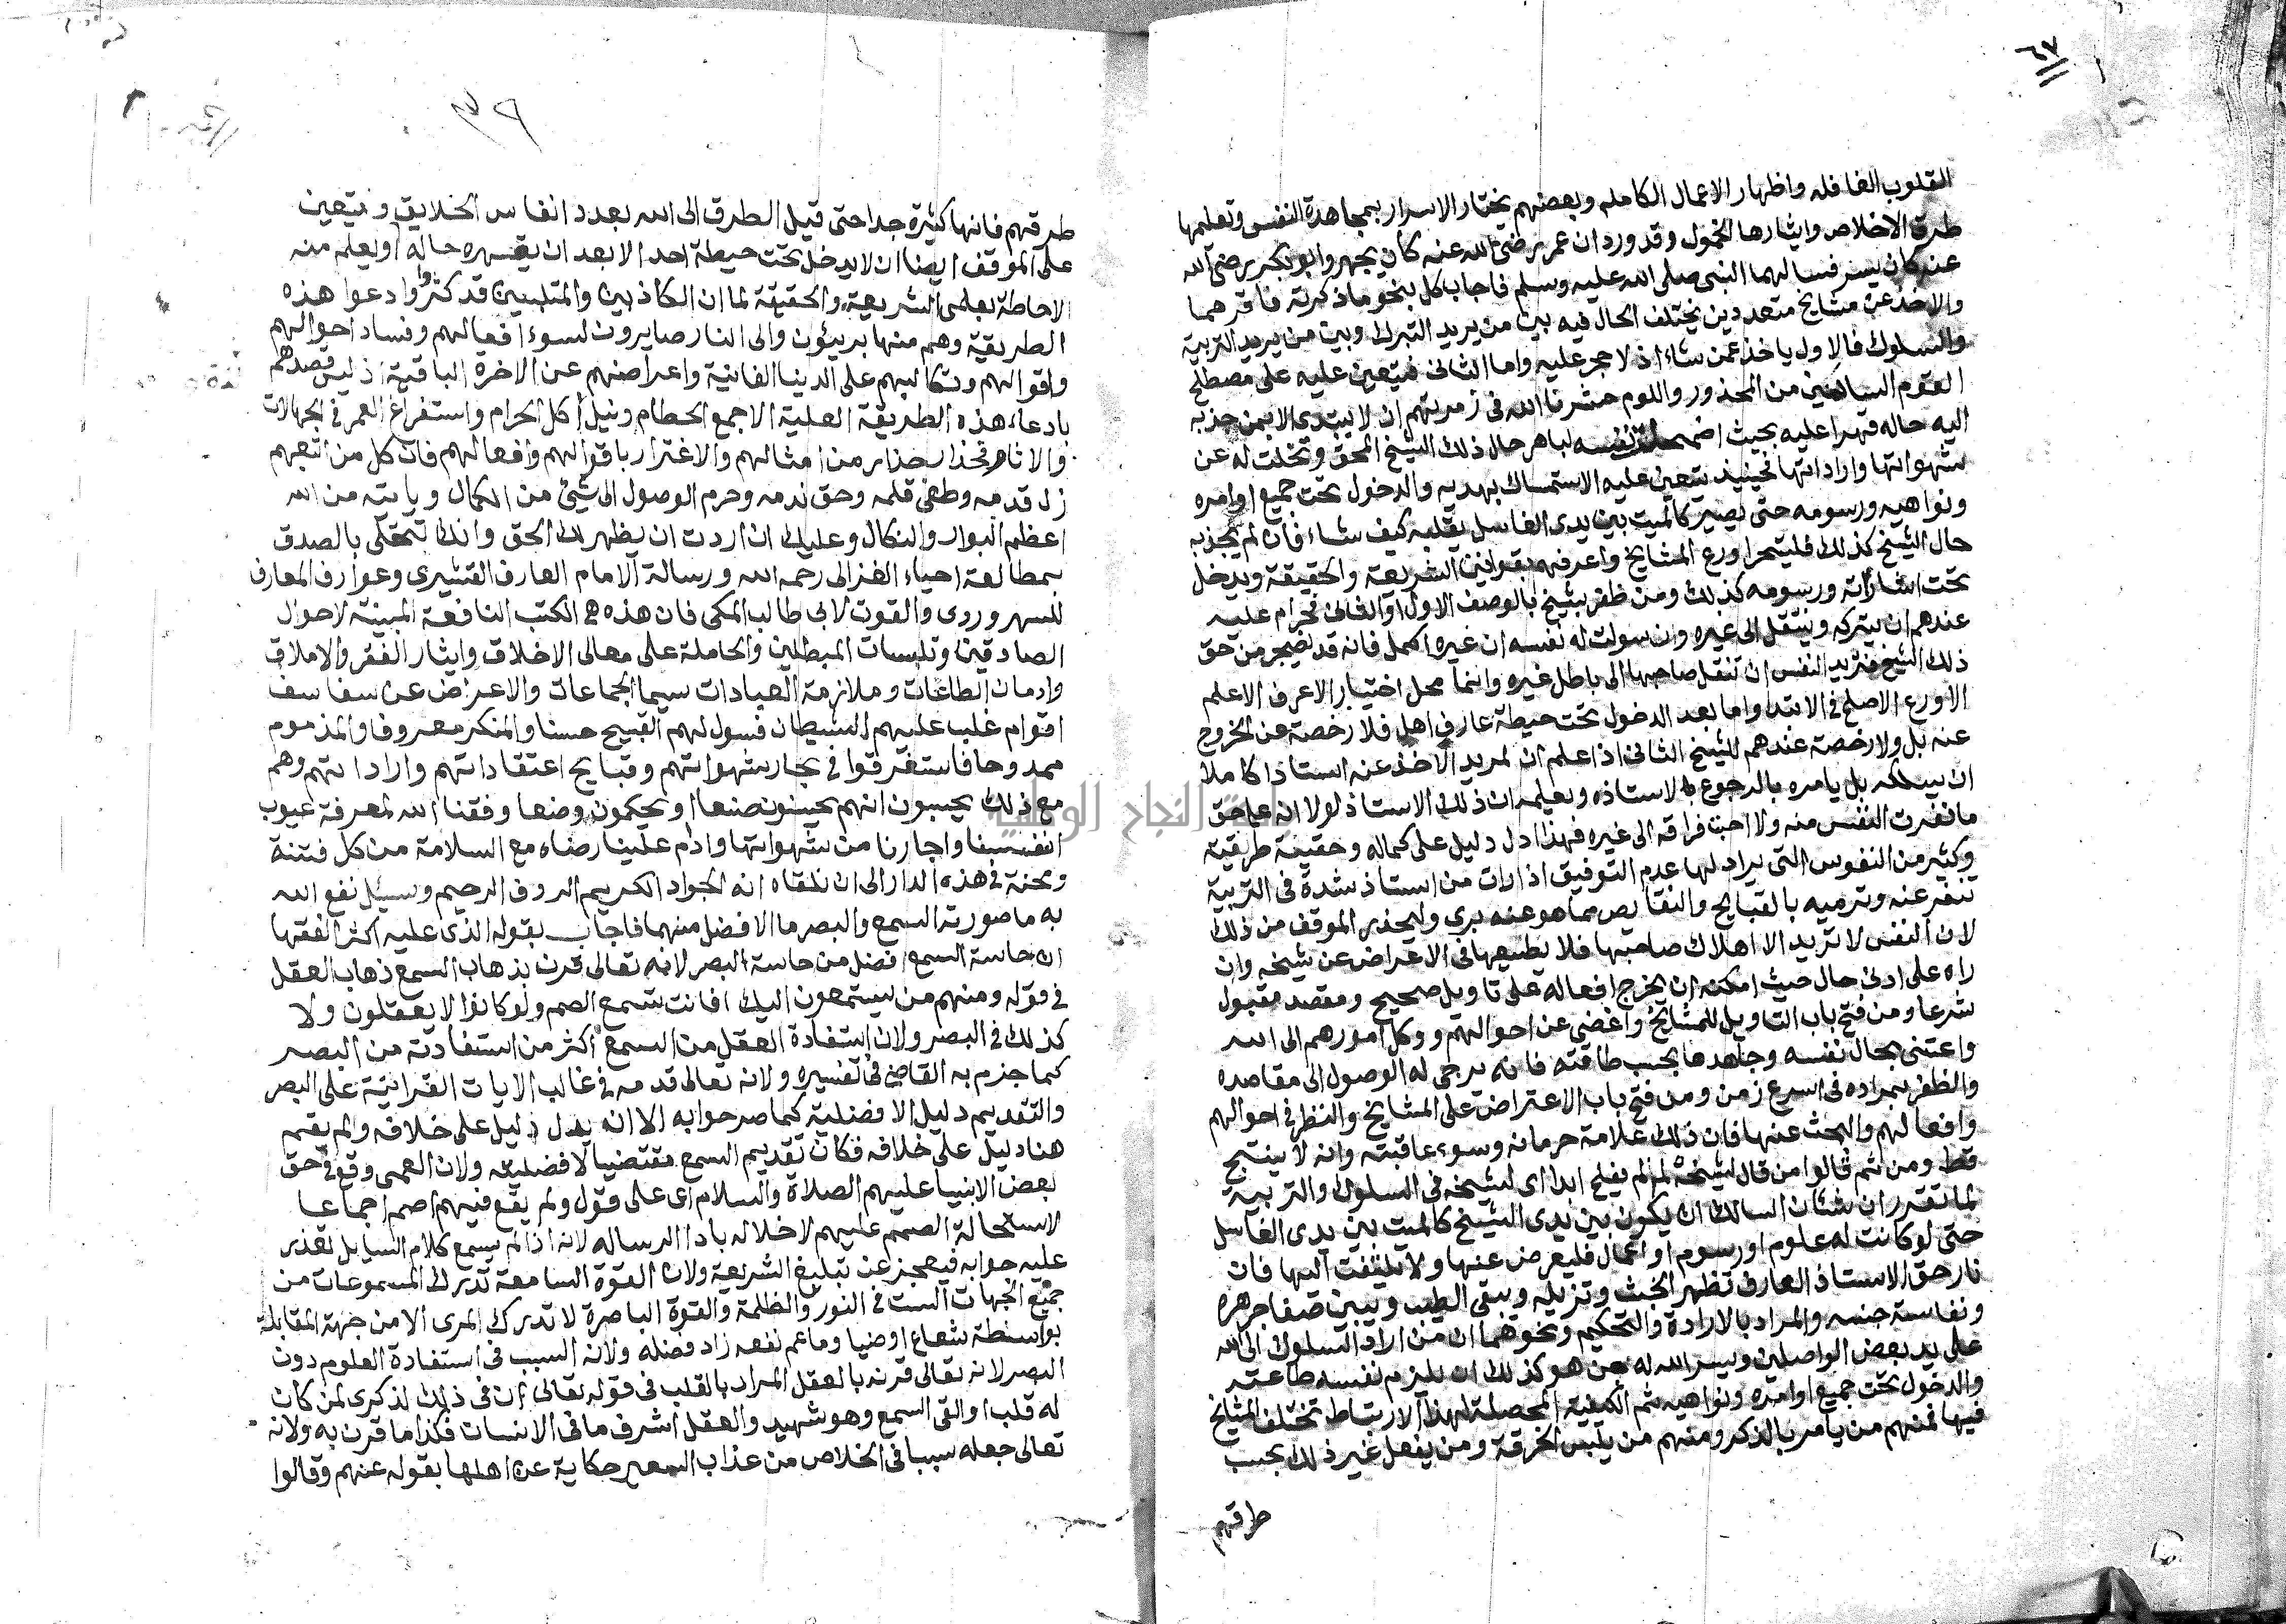 ٦٧
القلوب الغافله واظهار الاعمال الكامله وبعضهم يختار الاسرار بمجاهدة النفس وتعليمها
طرق الاخلاص وايثارها الخمول وقد ورد ان عمر رضي الله عنه كان يجهر وابو بكر رضي الله
عنه كان يسر فسالهما النبي صلى الله عليه وسلم فاجاب كل بنحو ما ذكرته فاقرهما
والاخذ عن مشايخ متعددين يختلف الحال فيه بين من يريد التبرك وبين من يريد التربية
والسلوك فالاول ياخذ عمن شاء اذ لا حجر عليه واما الثاني فيتعين عليه على مصطلح
القوم السالمين من المحذور واللوم حشرنا الله في زمرتهم ان لا يبتدي الا بمن جذبه
اليه حاله قهرا عليه بحيث اضمحلت نفسه لباهر حال ذلك الشيخ المحق وتخلت له عن
شهواتها واراداتها فحينيذ يتعين عليه الاستمساك بهديه والدخول تحت جميع اوامره
ونواهيه ورسومه حتى يصير كالميت بين يدي الغاسل يقلبه كيف شاء فان لم يجذبه
حال الشيخ كذلك فليتحر اورع المشايخ واعرفهم بقوانين الشريعة والحقيقة ويدخل
تحت اشاراته ورسومه كذلك ومن ظفر بشيخ بالوصف الاول او الثاني فحرام عليه
عندهم ان يتركه وينتقل الى غيره وان سولت له نفسه ان غيره اكمل فانه قد تضجر من حق
ذلك الشيخ فتريد النفس ان تنقل صاحبها الى باطل غيره وانما محل اختيار الاعرف الاعلم
الاورع الاصلح في الابتدا واما بعد الدخول تحت حيطة عارف اهل فلا رخصة عن الخروج
عنه بل ولا رخصة عندهم للشيخ الثاني اذا علم ان لمريد الاخذ عنه استاذا كاملا
ان يسلكه بل يامره بالرجوع لاستاذه ويعلمه ان ذلك الاستاذ لولا انه على حق
ما نفرت النفس منه ولا احبت فراقه الى غيره فهذا ادل دليل على كماله وحقيقة طريقته
وكثير من النفوس التي يراد لها عدم التوفيق اذا رات من استاذ شدة في التربية
تنفر عنه وترميه بالقبايح والنقايص مما هو عنه بري وليحذر الموقف من ذلك
لان النفس لا تريد الا اهلاك صاحبها فلا يطيعها في الاعراض عن شيخه وان
راه على ادنى حال حيث امكنه ان يخرج افعاله على تاويل صحيح ومقصد مقبول
شرعا ومن فتح باب التاويل للمشايخ واغضى عن احوالهم ووكل امورهم الى الله
واعتنى بحال نفسه وجاهدها بحسب طاقته فانه يرجى له الوصول الى مقاصده
والظفر بمراده في اسرع زمن ومن فتح باب الاعتراض على المشايخ والنظر في احوالهم
وافعالهم والبحث عنها فان ذلك علامة حرمانه وسوء عاقبته وانه لا ينتج
قط ومن ثم قالوا من قال لشيخه لم لم يفلح ابدا اي لشيخه في السلوك والتربية
لما تقرر ان شان السالك ان يكون بين يدي الشيخ كالميت بين يدي الغاسل
حتى لو كانت له علوم او رسوم او اعمال فليعرض عنها ولا يلتفت اليها فان
نار حق الاستاذ العارف تظهر الخبث وتزيله ويبقى الطيب ويبين صفا جوهره
ونفاسة جنسه والمراد بالارادة والتحكيم ونحوهما ان من اراد السلوك الى الله
على يد بعض الواصلين ويسر الله له من هو كذلك ان يلزم نفسه طاعته
والدخول تحت جميع اوامره ونواهيه ثم الكيفية المحصلة لهذا الارتباط تختلف المشايخ
فيها فمنهم من يامر بالذكر ومنهم من يلبس الخرقة ومن يفعل غير ذلك بحسب
طرقهم
طرقهم فانها كثيرة جدا حتى قيل الطرق الى الله بعدد انفاس الخلايق ويتعين
على الموقف ايضا ان لا يدخل تحت حيطة احد الا بعد ان يقسره حاله او يعلم منه
الاحاطة بعلمي الشريعة والحقيقة لما ان الكاذبين والمتلبسين قد كثروا وادعوا هذه
الطريقة وهم منها بريئون والى النار صايرون لسوء افعالهم وفساد احوالهم
واقوالهم وتكالبهم على الدنيا الفانية واعراضهم عن الاخرة الباقية اذ ليس قصدهم
بادعاء هذه الطريقة العلية الا جمع الحطام ونيل اكل الحرام واستفراغ العمر في الجهالات
والاثام فحذار حذار من امثالهم والاغترار باقوالهم وافعالهم فان كل من اتبعهم
زل قدمه وطغى قلمه وحق ندمه وحرم الوصول الى شيئ من الكمال وياتيه من الله
اعظم البوار والنكال وعليك ان اردت ان يظهر لك الحق وانك تتحلى بالصدق
بمطالعة احياء الغزالي رحمه الله ورسالة الامام العارف القشيري وعوارف المعارف
للسهروردي والقوت لابي طالب المكي فان هذه هي الكتب النافعة المبينة لاحوال
الصادقين وتلبسات المبطلين والحاملة على معالي الاخلاق وايثار الفقر والاملاق
وادمان الطاعات وملازمة العبادات سيما الجماعات والاعراض عن سفاسف
اقوام غلب عليهم الشيطان فسول لهم القبيح حسنا والمنكر معروفا والمذموم
ممدوحا فاستغرقوا في بحار شهواتهم وقبايح اعتقاداتهم واراداتهم وهم
مع ذلك يحسبون انهم يحسنون صنعا او يحكمون وضعا وفقنا الله لمعرفة عيوب
انفسنا واجارنا من شهواتها وادام علينا رضاه مع السلامة من كل فتنة
ومحنة في هذه الدار الى ان نلقاه انه الجواد الكريم الروف الرحيم وسيئل نفع الله
به ما صورته السمع والبصر ما الافضل منهما فاجاب بقوله الذي عليه اكثر الفقها
ان حاسة السمع افضل من حاسة البصر لانه تعالى قرن بذهاب السمع ذهاب العقل
في قوله ومنهم من يستمعون اليك افانت تسمع الصم ولو كانوا لا يعقلون ولا
كذلك في البصر ولان استفادة العقل من السمع اكثر من استفادته من البصر
كما جزم به القاضي في تفسيره ولانه تعالى قدمه في غالب الايات القرانية على البصر
والتقديم دليل الافضلية كما صرحوا به الا انه يدل دليل على خلافه ولم يقم
هنا دليل على خلافه فكان تقديم السمع مقتضيا لافضليته ولان العمى وقع في حق
بعض الانبيا عليهم الصلاة والسلام اي على قول ولم يقع فيهم اصم اجماعا
لاستحالة الصمم عليهم لاخلاله بادا الرساله لانه اذا لم يسمع كلام السايل تعذر
عليه جوابه فيعجز عن تبليغ الشريعة ولان القوة السامعة تدرك المسموعات من
جميع الجهات الست في النور والظلمة والقوة الباصرة لا تدرك المرى الا من جهة المقابلة
بواسطة شعاع او ضيا وما عم نفعه زاد فضله ولانه السبب في استفادة العلوم دون
البصر لانه تعالى قرنه بالعقل المراد بالقلب في قوله تعالى ان في ذلك لذكرى لمن كان
له قلب او القى السمع وهو شهيد والعقل اشرف ما في الانسان فكذا ما قرن به ولانه
تعالى جعله سببا في الخلاص من عذاب السعير حكاية عن اهلها بقوله عنهم وقالوا